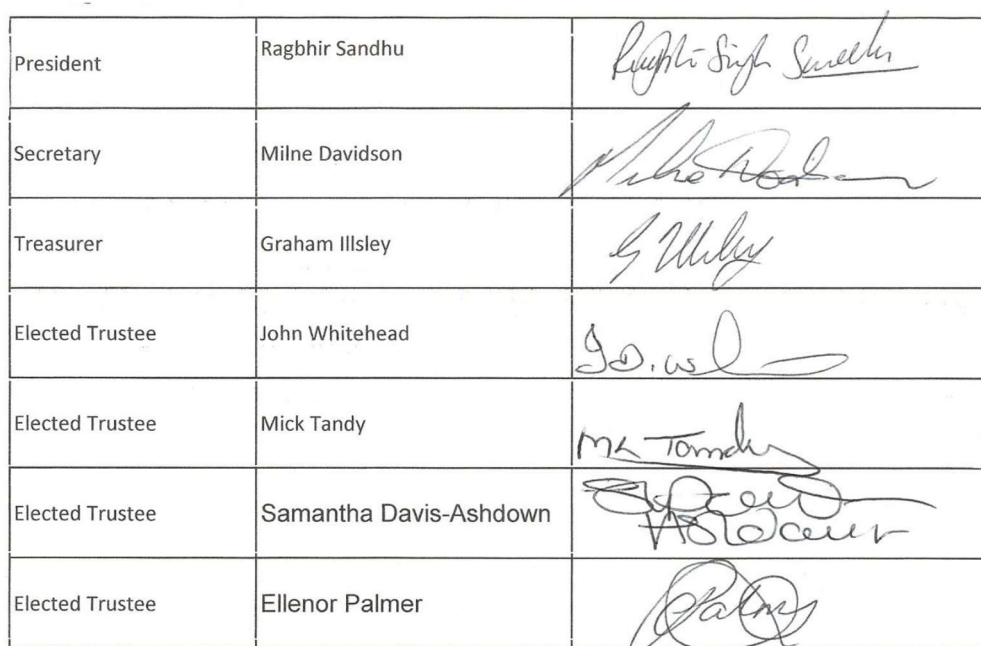 President Ragbhir Sandhu Singh
Secretary Milne Davidson Milne
Treasurer Graham Illsley G Illsley
Elected Trustee John Whitehead J.D.W
Elected Trustee Mick Tandy MK Tandy
Elected Trustee Samantha Davis-Ashdown
Elected Trustee Ellenor Palmer Palmer